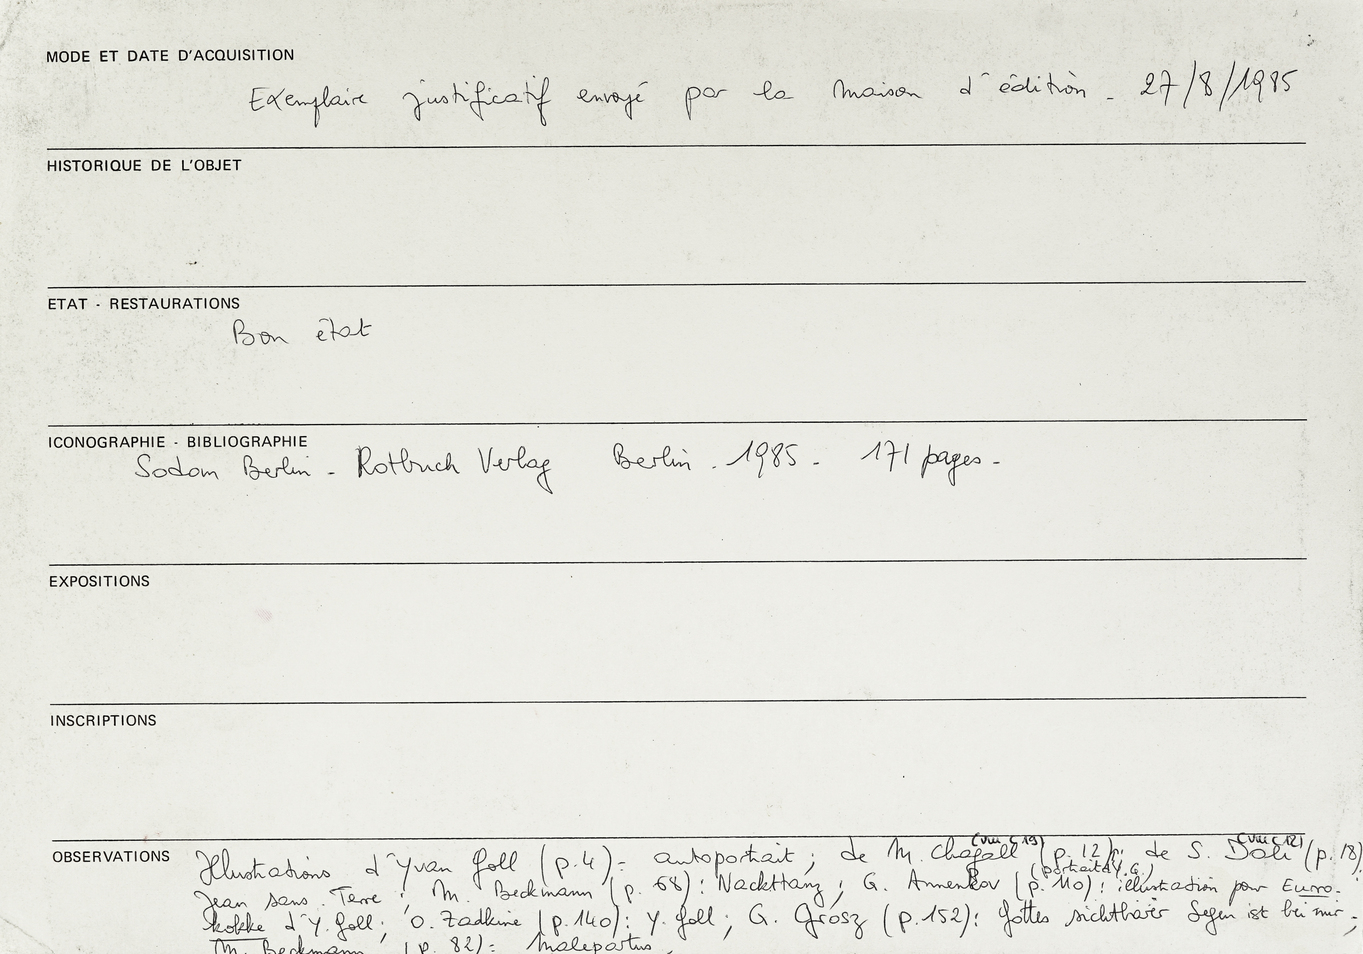 MODE ET DATE D'ACQUISITION
Exemplaire justificatif envoyé par la maison d'édition - 27/8/1985
HISTORIQUE DE L'OBJET
ETAT - RESTAURATIONS
Bon état
ICONOGRAPHIE - BIBLIOGRAPHIE
Sodom Berlin - Rotbuch Verlag Berlin - 1985 - 171 pages -
EXPOSITIONS
INSCRIPTIONS
OBSERVATIONS
Illustrations d'Yvan Goll (p.4) : autoportrait ; de M. Chagall (p.12) ; de S. Dali (p.18)
(portrait Y.G.)
Jean sans Terre ; M. Beckmann (p. 68) : Nackttanz ; G. Annenkov (p. 110) : illustration pour Euro-
kokke d'Y. Goll ; O. Zadkine (p.140) : Y. Goll ; G. Grosz (p.152) : Gottes sichtbarer Segen ist bei mir - ;
M. Beckmann (p. 82) : Malepartus